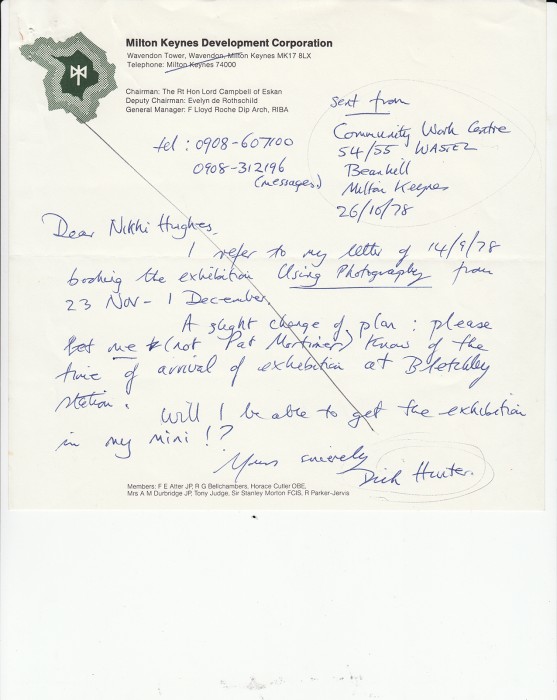 Milton Keynes Development Corporation
Wavendon Tower, Wavendon, Milton Keynes MK17 8LX
Telephone: Milton Keynes 74000
Chairman: The Rt Hon Lord Campbell of Eskan
Deputy Chairman: Evelyn de Rothschild
General Manager: F Lloyd Roche Dip Arch, RIBA
tel: 0908-607100
0908-312196
(messages)
sent from
Community Work Centre
54/55 WASTEL
Beanhill
Milton Keynes
26/10/78
Dear Nikki Hughes,
I refer to my letter of 14/9/78
booking the exhibition Using Photography from
23 Nov - 1 December.
A slight change of plan: please
let me (not Pat Mortimer) know of the
time of arrival of exhibition at Bletchley
station. Will I be able to get the exhibition
in my mini!?
Yours sincerely
Dick Hunter.
Members: F E Alter JP, R G Bellchambers, Horace Cutler OBE,
Mrs A M Durbridge JP, Tony Judge, Sir Stanley Morton FCIS, R Parker-Jervis